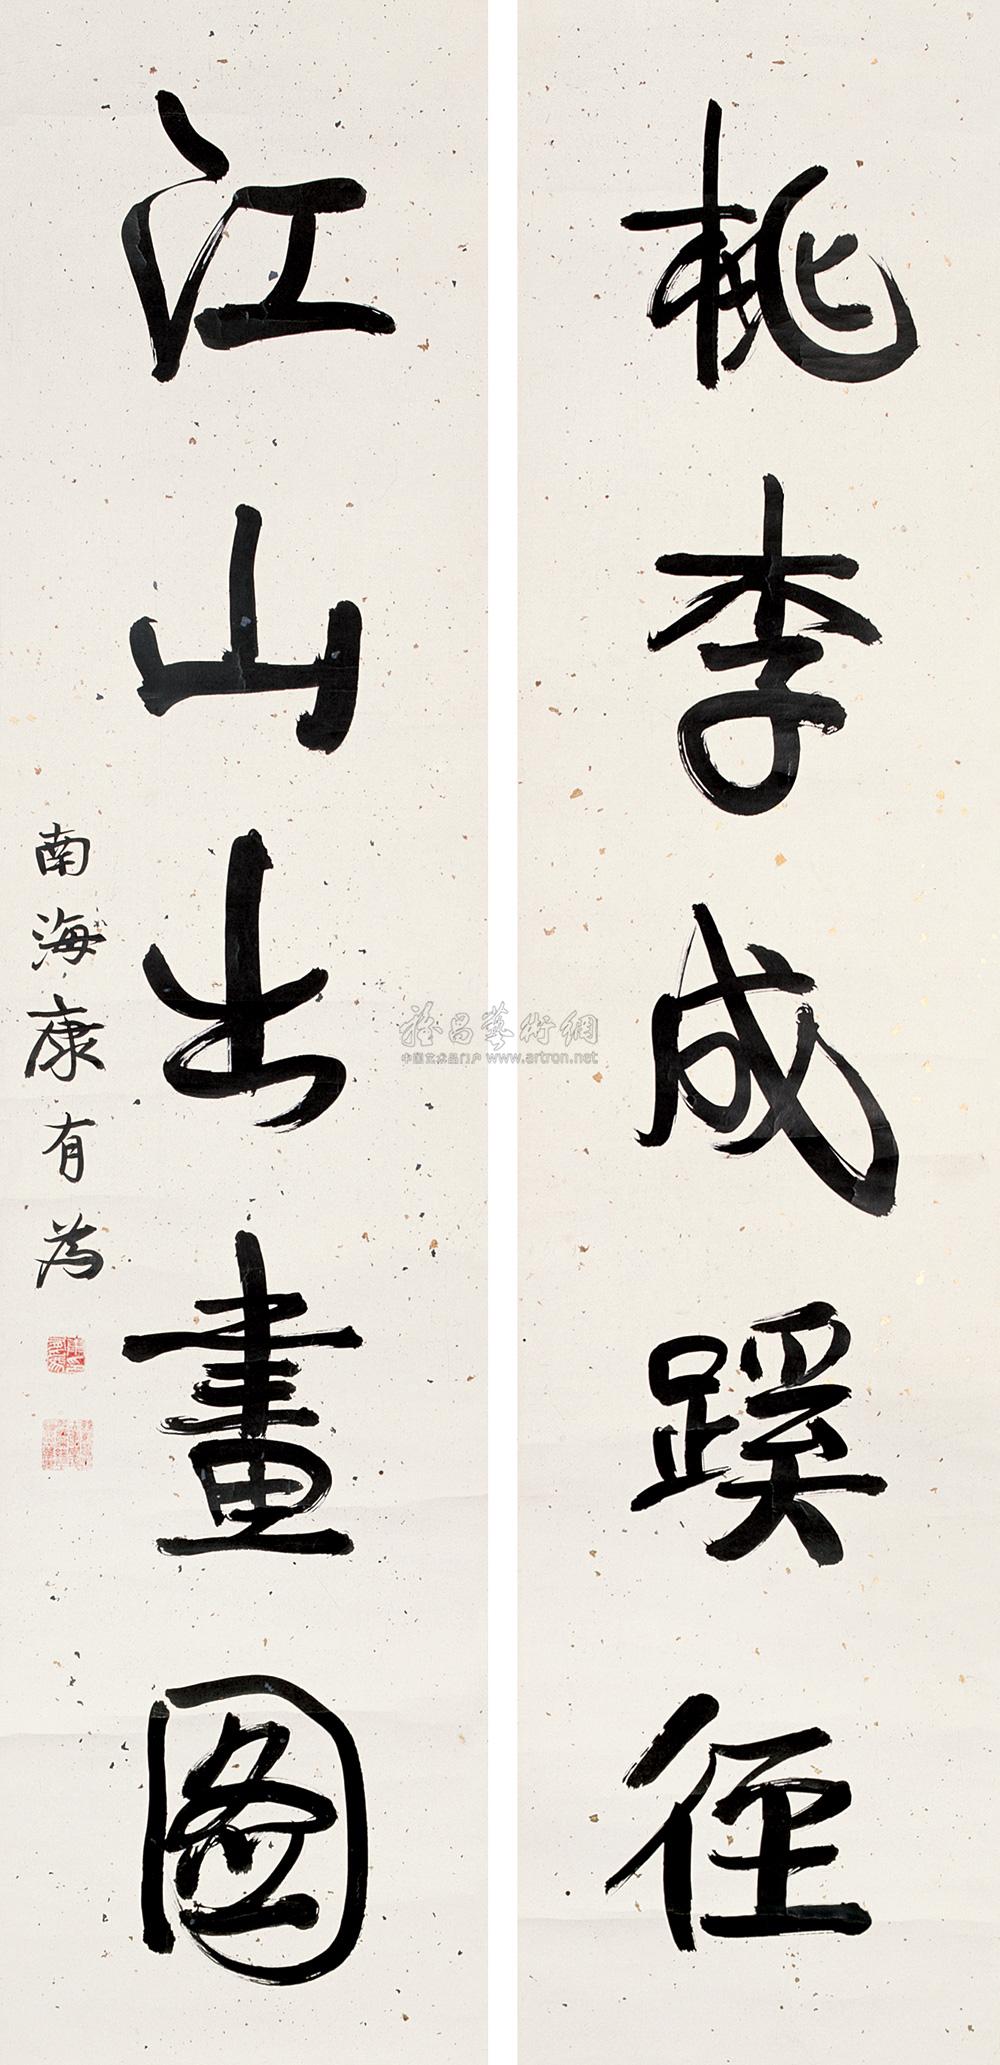 桃李成蹊徑
江山出畫圖
南海康有為
雅昌藝術網
中国艺术品门户 www.artron.net